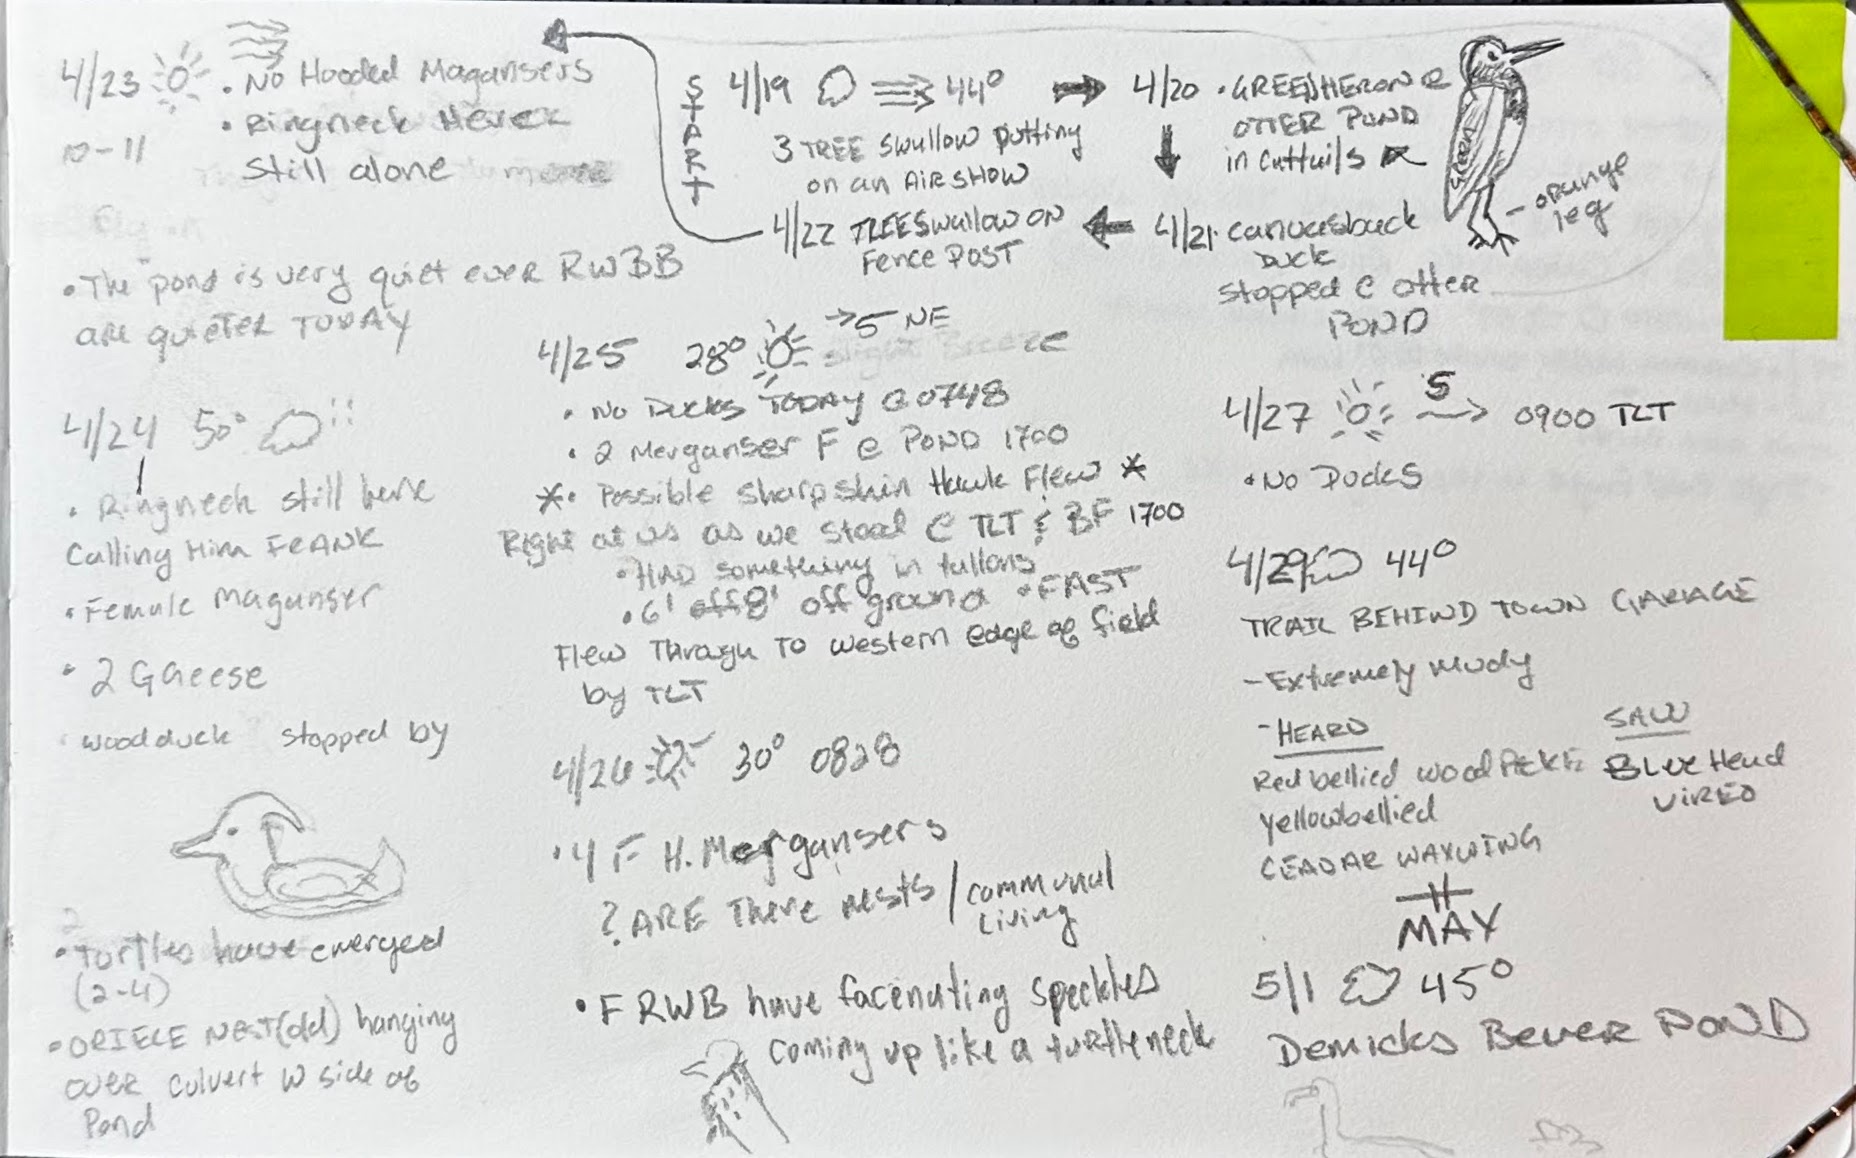 START
4/19 44°
3 TREE swallow putting
on an AIR SHOW
4/20 • GREEN HERON @
OTTER POND
in cattails
orange
leg
4/21 • canvasback
DUCK
stopped @ otter
POND
4/22 TREE Swallow ON
Fence POST
4/23 • No Hooded Magansers
10-11 • Ringneck Here
Still alone
• The pond is very quiet even RWBB
are quieter TODAY
4/24 50°
• Ringneck still here
Calling Him FRANK
• Female Maganser
• 2 Geese
wood duck stopped by
• Turtles have emerged
(2-4)
• ORIELE NEST (old) hanging
over culvert W side of
Pond
4/25 28° → 5 NE
slight Breeze
• No Ducks TODAY @ 0748
• 2 Merganser F @ POND 1700
*• Possible sharpshin Hawk Flew *
Right at us as we stood @ TLT & BF 1700
• HAD something in tallons
• 6' off 8' off ground • FAST
Flew Through To western edge of field
by TLT
4/26 30° 0828
• 4 F H. Mergansers
? ARE There nests / communal
living
• F RWB have facenating speckles
coming up like a turtleneck
4/27 5 0900 TLT
• No Ducks
4/29 44°
TRAIL BEHIND TOWN GARAGE
- Extremely mudy
- HEARD
Red bellied
yellowbellied
CEADAR WAXWING
SAW
BLUE Head
VIREO
MAY
5/1 45°
Demicks Bever POND